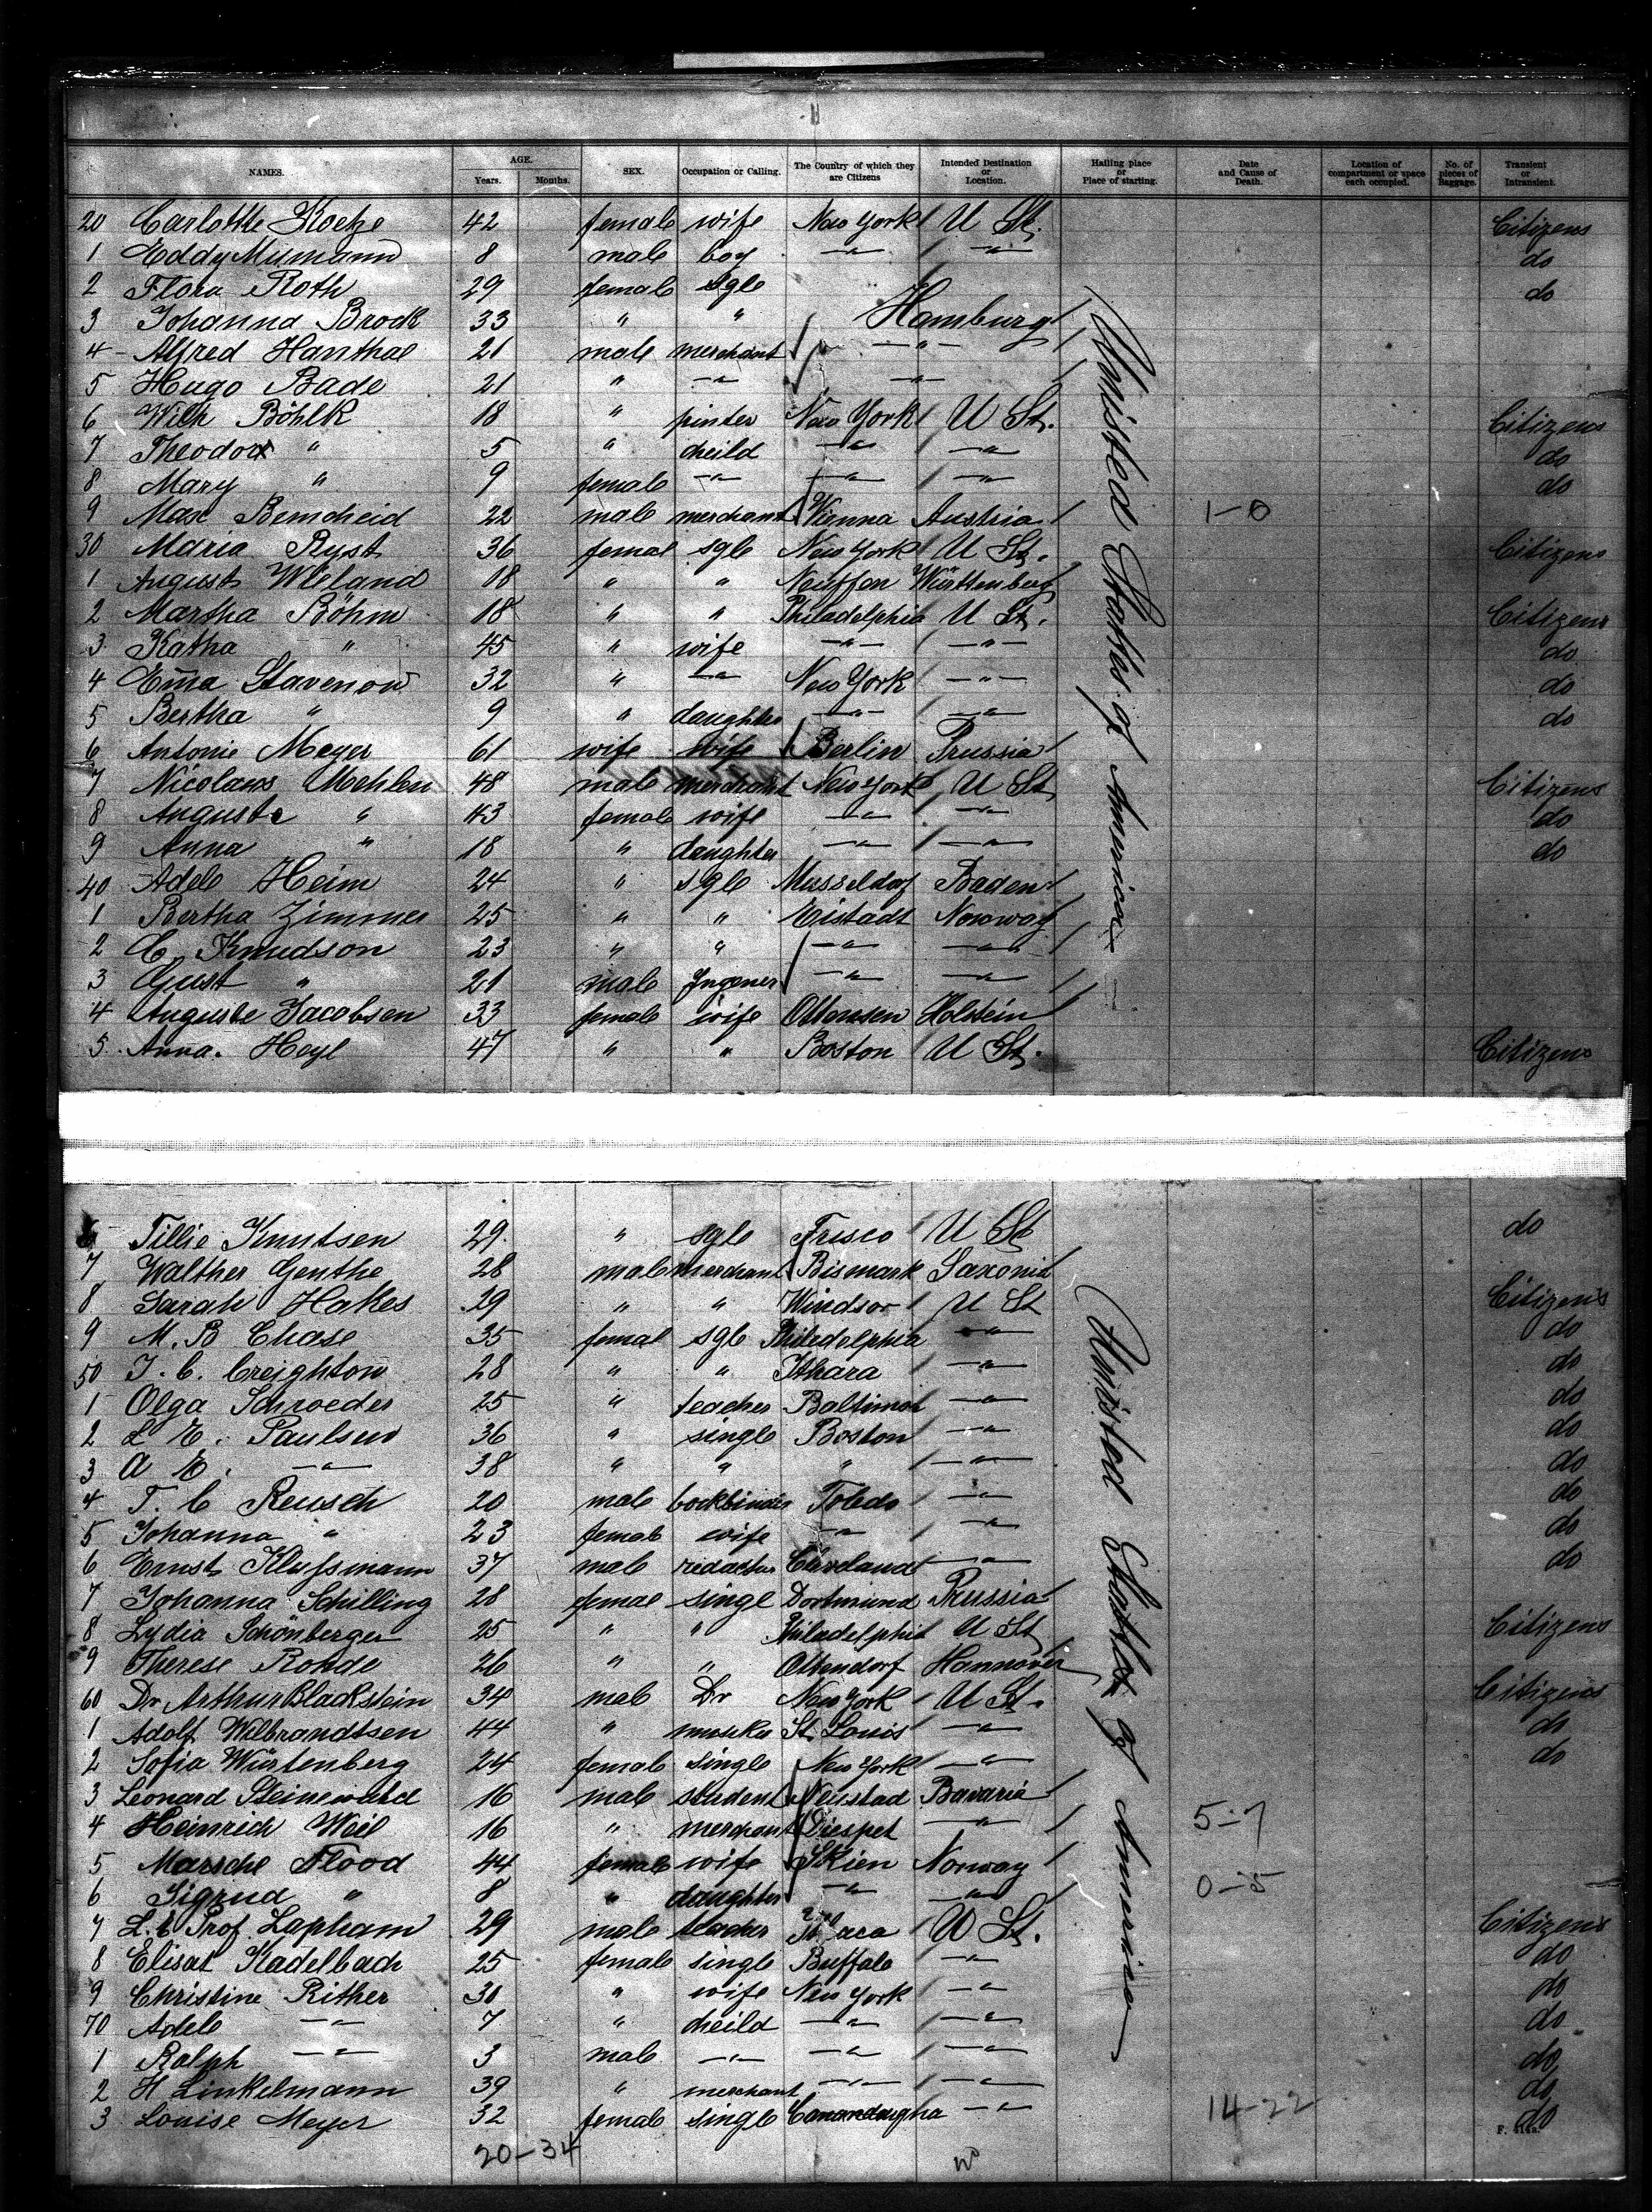 NAMES. AGE. Years. Months. SEX. Occupation or Calling. The Country of which they are Citizens Intended Destination or Location. Hailing place or Place of starting. Date and Cause of Death. Location of compartment or space each occupied. No. of pieces of Baggage. Transient or Intransient.
20 Carlotte Koetze 42 female wife New York U St. Citizens
1 Eddy Mumann 8 male boy —"— —"— do
2 Flora Roth 29 female sgle do
3 Johanna Brock 33 " " Hamburg
4 Alfred Hanthal 21 male merchant —"—
5 Hugo Bade 21 " —"— —"—
6 Wilh Böhlk 18 " pinter New York U St. Citizens
7 Theodor " 5 " cheild —"— —"— do
8 Mary " 9 female —"— —"— —"— do
9 Max Bemcheid 22 male merchant Vienna Austria 1-0
30 Maria Ryst 36 femal sgle New York U St. Citizens
1 August Wieland 18 " " Neuffen Württenberg
2 Martha Böhm 18 " " Philadelphia U St. Citizens
3 Katha " 45 " wife —"— —"— do
4 Em̄a Stavenow 32 " —"— New York —"— do
5 Bertha " 9 " daughter —"— —"— do
6 Antonie Meyer 61 wife wife Berlin Prussia
7 Nicolaus Mehlen 48 male merchant New York U St Citizens
8 Auguste " 43 female wife —"— —"— do
9 Anna " 18 " daughter —"— —"— do
40 Adele Heim 24 " sgle Musseldorf Baden
1 Bertha Zimmer 25 " " Eistadt Norway
2 C. Knudson 23 " " —"— —"—
3 Gust " 21 male Ingener —"— —"—
4 Auguste Jacobsen 33 female wife Ottensen Holstein
5 Anna. Heyl 47 " " Boston U St. Citizens
United States of America —
6 Tillie Knutsen 29. " sgle Frisco U St do
7 Walther Genthe 28 male merchant Bismark Saxonia
8 Sarah Hakes 29 " " Windsor U St Citizens
9 M. B Chase 35 femal sgle Philedelphia —"— do
50 J. C. Creighton 28 " " Ithara —"— do
1 Olga Schroeder 25 " teacher Baltimor —"— do
2 L E. Paulsen 36 " single Boston —"— do
3 A E. —"— 38 " " " —"— do
4 T. C Reusch 20 male bookbinder Toledo —"— do
5 Johanna " 23 female wife —"— —"— do
6 Ernst Klussmann 37 male redacteur Cleveland —"— do
7 Johanna Schilling 28 femae singl Dortmund Prussia
8 Lydia Schönberger 25 " " Philadelphia U St Citizens
9 Therese Rohde 26 " " Ottendorf Hannover
60 Dr Arthur Blackstein 34 male Dr New York U St. Citizens
1 Adolf Wilbrandtsen 44 " St. Louis —"— do
2 Sofia Würtenberg 24 female single New York —"— do
3 Leonard 16 male student Neustad Bavaria
4 Heinrich Weil 16 " merchant Diespet —"— 5-7
5 Marsche Flood 44 female wife Skien Norway
6 Sigrud " 8 " daughter —"— —"— 0-5
7 L. C Prof. Lapham 29 male teacher U St. Citizens
8 Elisat Kadelbach 25 female single Buffalo —"— do
9 Christine Rither 30 " wife New York —"— do
70 Adele —"— 7 " cheild —"— —"— do
1 Ralph —"— 3 male —"— —"— —"— do
2 H Linkelmann 39 " merchant —"— —"— do
3 Louise Meyer 32 female single Canandaugha —"— 14-22 do
United States of America —
20-34
F. 414a.